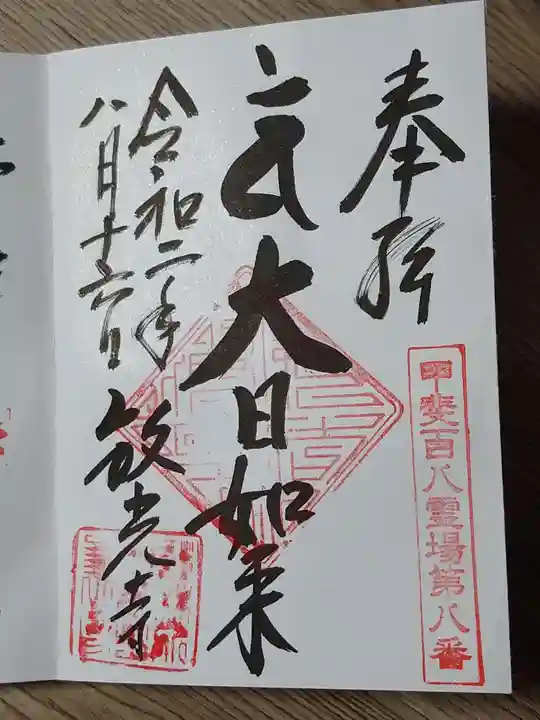 奉拝
甲斐百八霊場第八番
大日如来
令和二年
八月十六日
放光寺